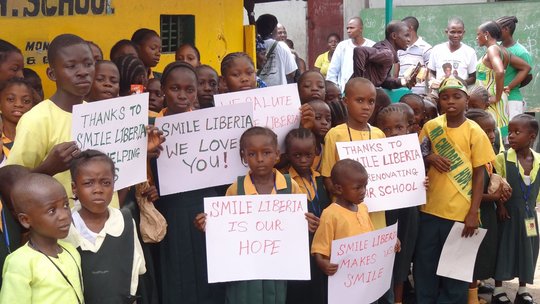 Y. SCHOOL
MON
THANKS TO
SMILE LIBERIA
HELPING
SMILE LIBERIA
WE LOVE
YOU!
WE SALUTE
LIBERIA
THANKS TO
SMILE LIBERIA
RENOVATING
OUR SCHOOL
SMILE LIBERIA
IS OUR
HOPE
SMILE LIBERIA
MAKES US
SMILE